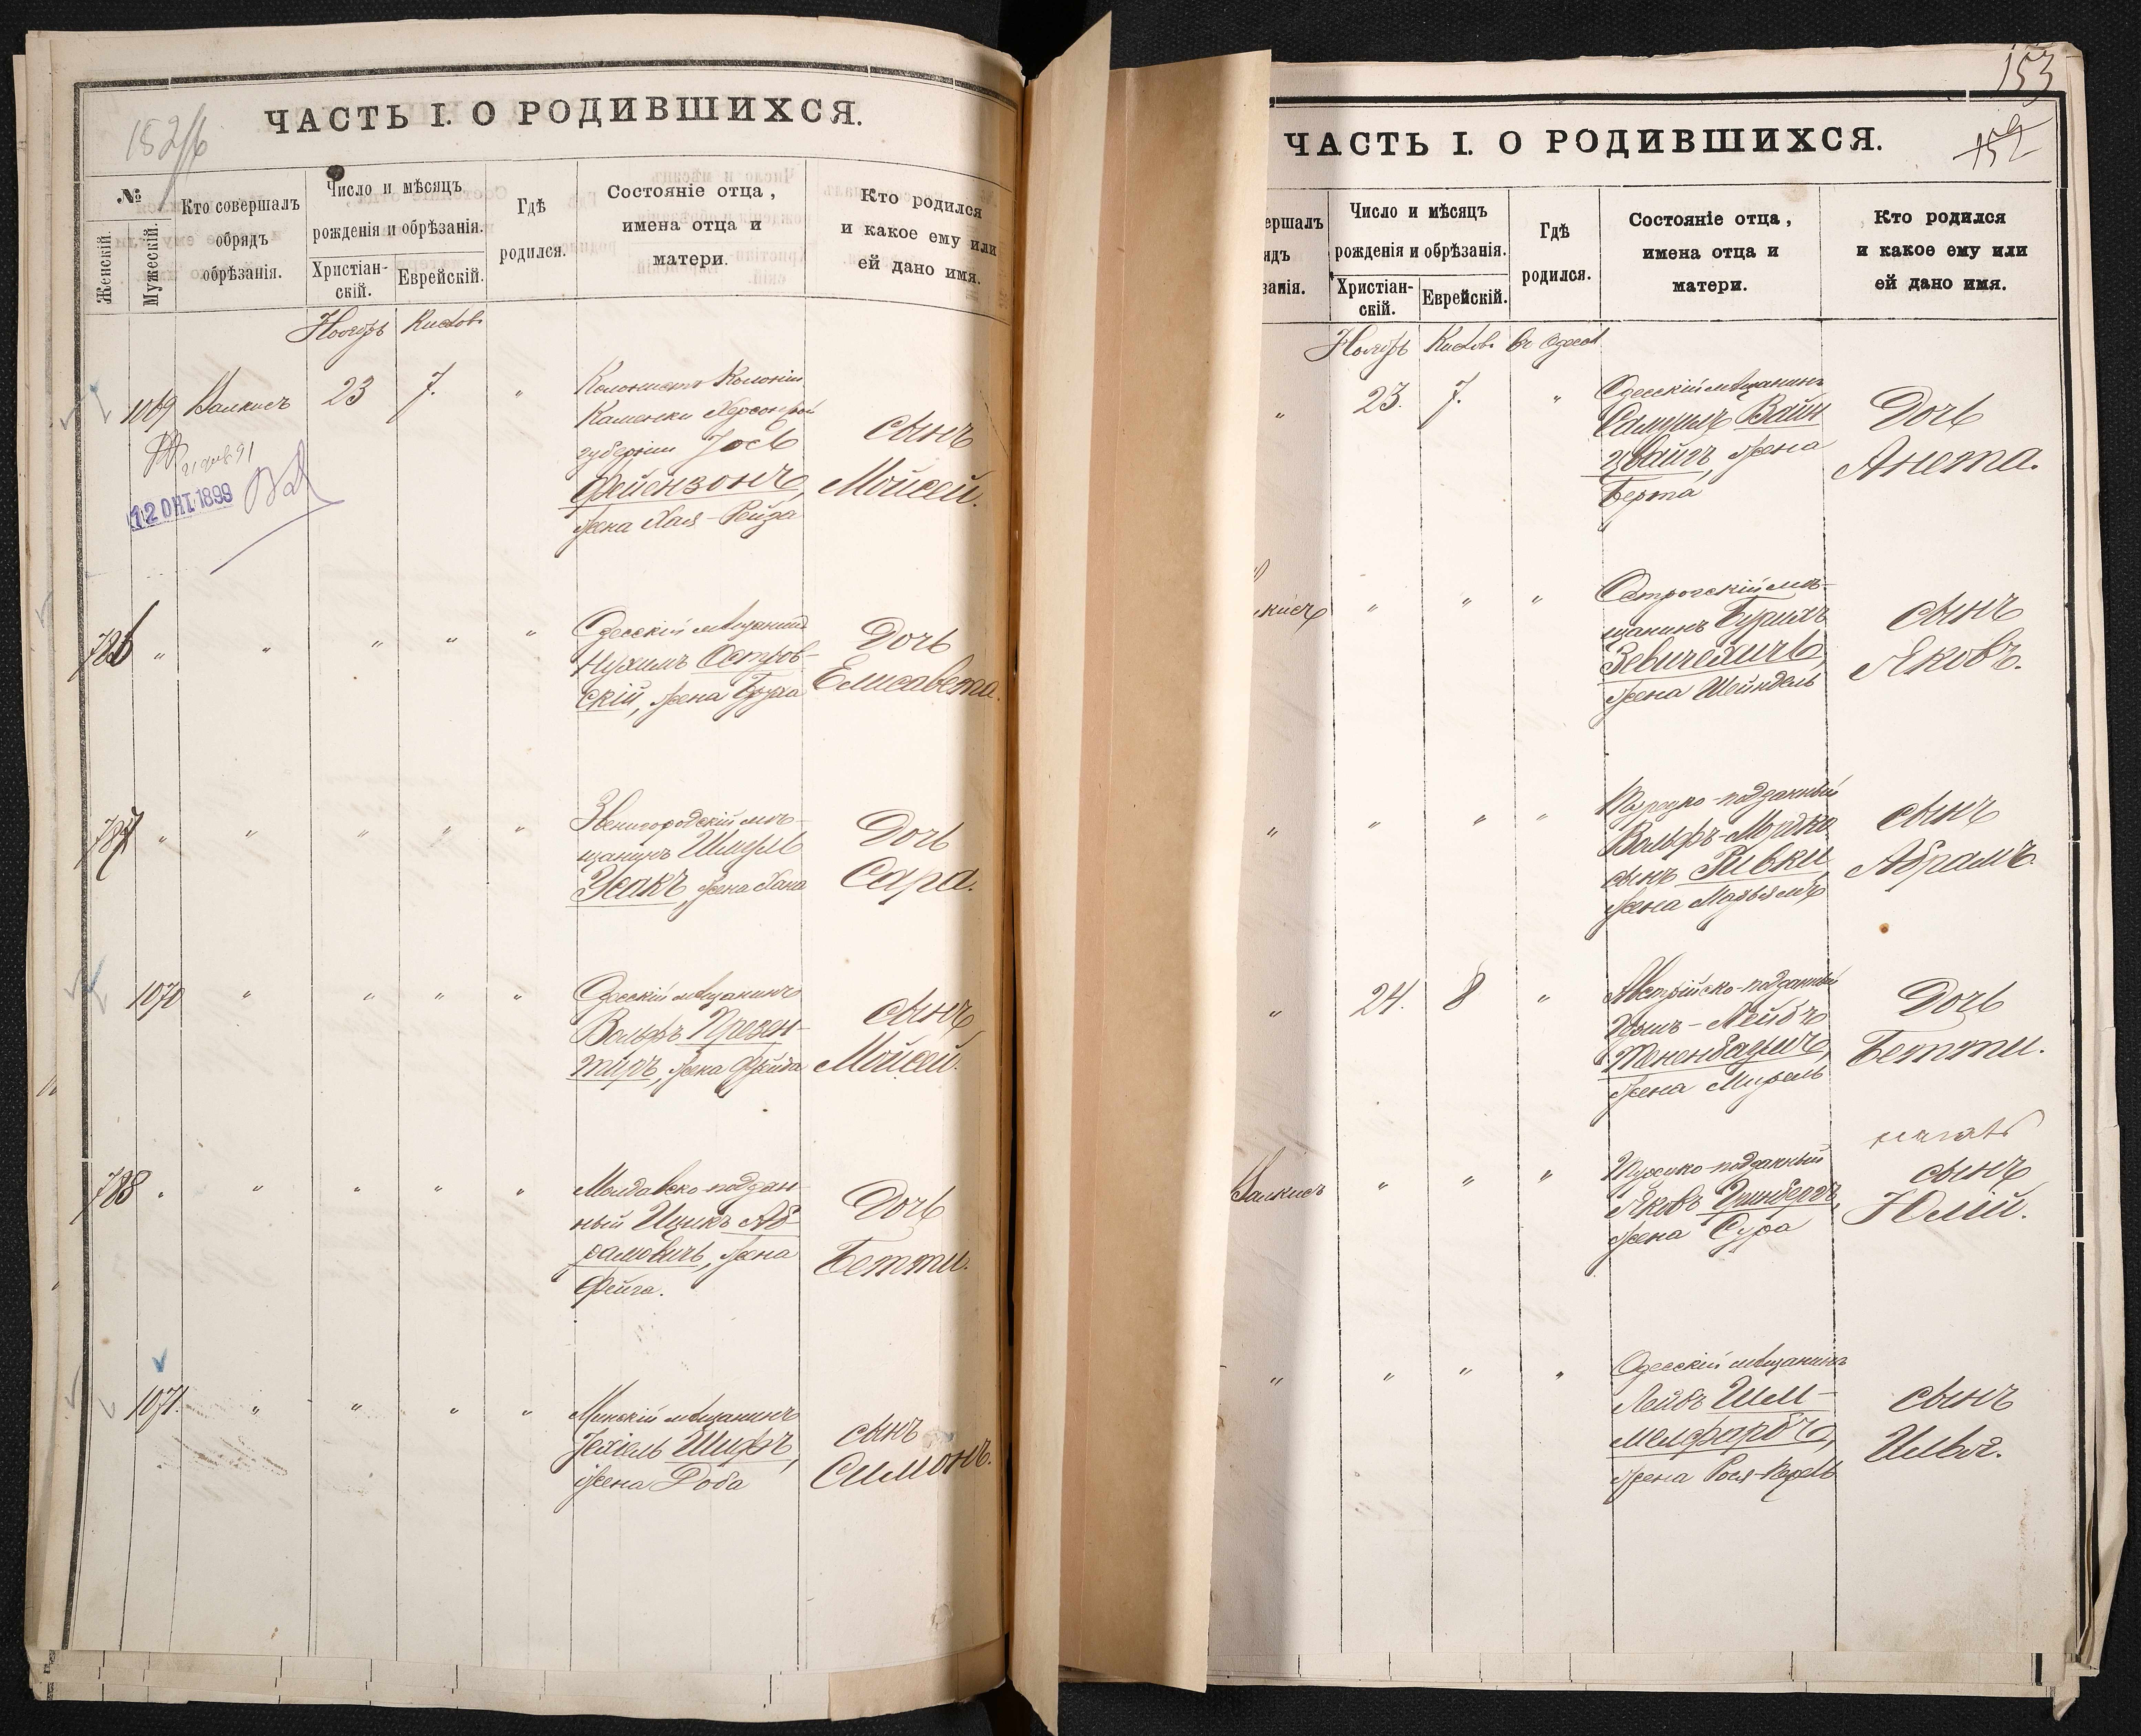 ЧАСТЬ I. О РОДИВШИХСЯ.
152/б
№
Женскій.
Мужескій.
Кто совершалъ
обрядъ
обрѣзанія.
Число и мѣсяцъ
рожденія и обрѣзанія.
Христіан-
скій.
Еврейскій.
Гдѣ
родился.
Состояніе отца,
имена отца и
матери.
Кто родился
и какое ему или
ей дано имя.
Ноябрь Кислов
1069 Валкисъ 23 7. "
Колонистъ Колоніи
Каменки Херсонской
губерніи Іось
Фейензонъ,
жена Хая-Рейза
сынъ
Мойсей.
12 ОКТ. 1899
786 " " " " "
Одесскій мѣщанинъ
Нухимъ Остров-
скій, жена Бруха
Дочь
Елисавета.
787 " " " " "
Звенигородскій мѣ-
щанинъ Шмуль
Усакъ, жена Хана
Дочь
Сара.
1070 " " " "
Одесскій мѣщанинъ
Вольфъ Презен-
тиръ, жена Фрейда
сынъ
Мойсей.
788 " " " " "
Молдавско-поддан-
ный Ицикъ Аб-
рамовичъ, жена
Фейга.
Дочь
Бетти.
1071. " " " "
Минскій мѣщанинъ
Іехіель Шифъ,
жена Доба
сынъ
Симонъ.
153
152
ЧАСТЬ I. О РОДИВШИХСЯ.
ершалъ
ядъ
занія.
Число и мѣсяцъ
рожденія и обрѣзанія.
Христіан-
скій.
Еврейскій.
Гдѣ
родился.
Состояніе отца,
имена отца и
матери.
Кто родился
и какое ему или
ей дано имя.
Ноябрь Кислов. Въ Одессѣ
" 23. 7. "
Одесскій мѣщанинъ
Самуилъ Вайн
цвайгъ, жена
Берта
Дочь
Анета.
кисъ " " "
Острогскій мѣ-
щанинъ
жена Шейндель
сынъ
Яковъ.
" " " "
Турецко-подданный
Вольфъ-Мордко
сынъ Ривки
жена Марьямъ
сынъ
Абрамъ.
" 24. 8 "
Австрійско-подданный
Хаимъ-Лейбъ
Тененбаумъ,
жена Мирель
Дочь
Бетти.
Валкисъ " " "
Турецко-подданный
Яковъ Гринбергъ,
жена Сура
сынъ
Юлій.
" " " "
Одесскій мѣщанинъ
Лейбъ Шей-
мелфарбъ,
жена Рося-Перель
сынъ
Илья.